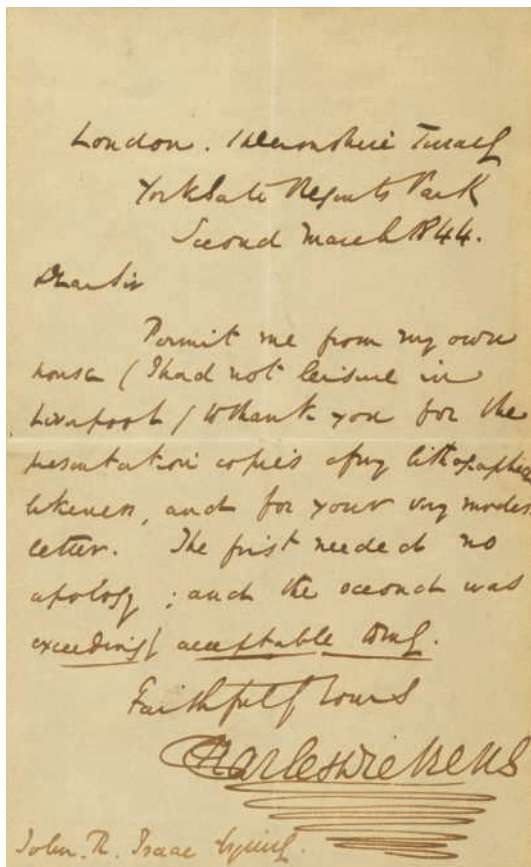 London. 1 Devonshire Terrace
York Gate Regents Park
Second March 1844.
Dear Sir
Permit me from my own
house (I had not leisure in
Liverpool) to thank you for the
presentation copies of my lithographed
likeness, and for your very modest
letter. The first needed no
apology; and the second was
exceedingly acceptable to me.
Faithfully Yours
Charles Dickens
John. R. Isaac Esquire.